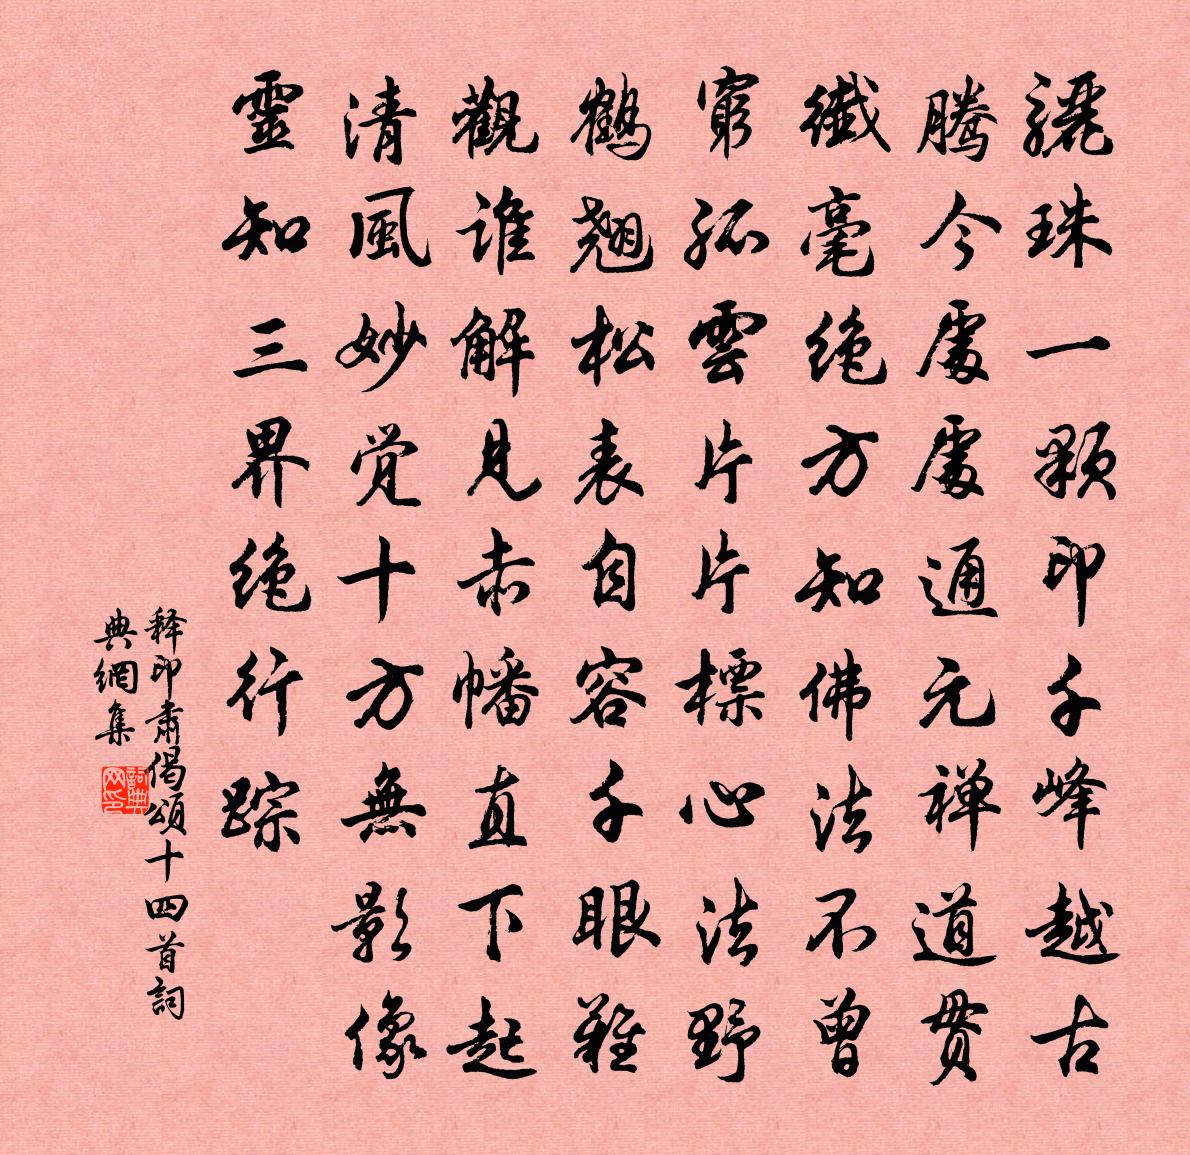 驪珠一顆印千峰越古
騰今處處通元禅道贯
纖毫绝方知佛法不曾
窮孤雲片片標心法野
鶴翹松表自容千眼難
觀誰解見赤幡直下起
清風妙觉十方無影像
靈知三界绝行踪
释印肃偈頌十四首詞
典網集
詞典网印